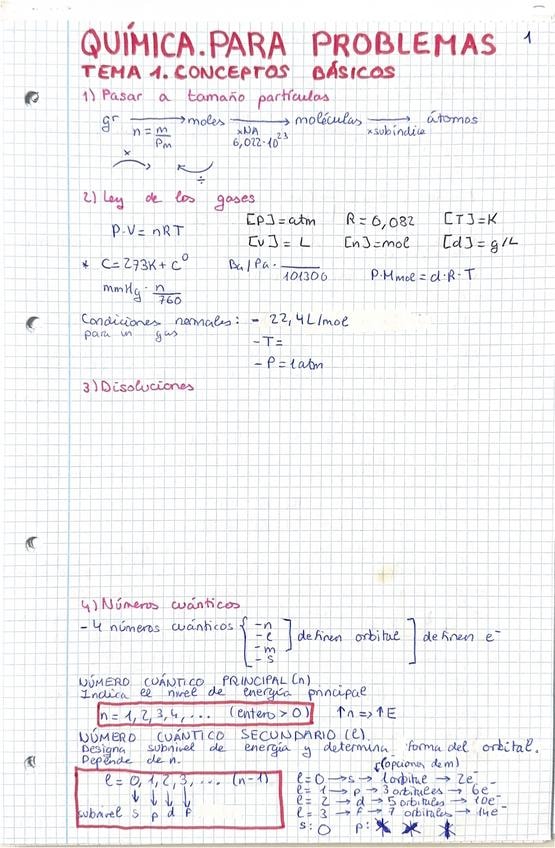 QUÍMICA. PARA PROBLEMAS 1
TEMA 1. CONCEPTOS BÁSICOS
1) Pasar a tamaño partículas
gr → moles → moléculas → átomos
n = m/Pm xNA 6,022·10^23 xsubíndice
x ÷
2) Ley de los gases
P·V = nRT [P] = atm R = 0,082 [T] = K
[V] = L [n] = mol [d] = g/L
* C = 273K + Cº Ba/Pa · —/101300 P·Mmol = d·R·T
mmHg · n/760
Condiciones normales: - 22,4 L/mol
para un gas
- T =
- P = 1 atm
3) Disoluciones
4) Números cuánticos
- 4 números cuánticos { -n -l -m ] definen orbital -s ] definen e-
NÚMERO CUÁNTICO PRINCIPAL (n)
Indica el nivel de energía principal
n = 1, 2, 3, 4, ... (entero > 0) ↑n => ↑E
NÚMERO CUÁNTICO SECUNDARIO (l)
Designa subnivel de energía y determina forma del orbital.
Depende de n. (opciones de m)
l = 0, 1, 2, 3, ... (n-1)
subnivel s p d f
l = 0 → s → 1 orbital → 2e-
l = 1 → p → 3 orbitales → 6e-
l = 2 → d → 5 orbitales → 10e-
l = 3 → f → 7 orbitales → 14e-
s: p: